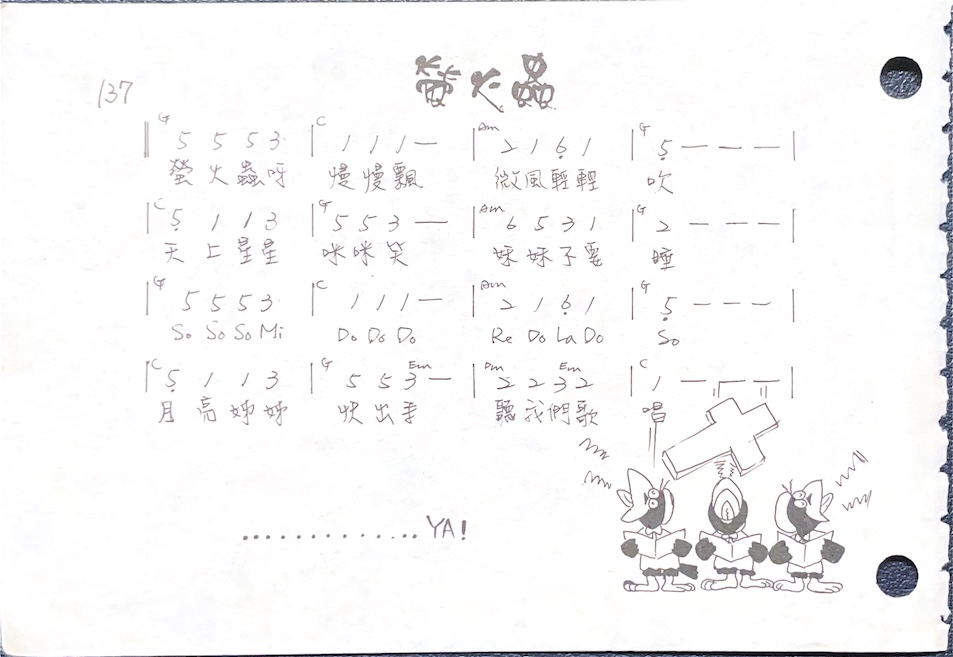 螢火蟲
137
G 5 5 5 3 | C 1 1 1 — | Am 2 1 6̣ 1 | G 5̣ — — — |
螢火蟲呀 慢慢飄 微風輕輕 吹
| C 5̣ 1 1 3 | G 5 5 3 — | Am 6 5 3 1 | G 2 — — — |
天上星星 咪咪笑 妹妹不要 睡
| G 5 5 5 3 | C 1 1 1 — | Am 2 1 6̣ 1 | G 5̣ — — — |
So So So Mi Do Do Do Re Do La Do So
| C 5̣ 1 1 3 | G 5 5 3 Em — | Dm 2 2 3 Em 2 | C 1 — — — |
月亮姊姊 快出手 聽我們歌 唱
.............. YA!